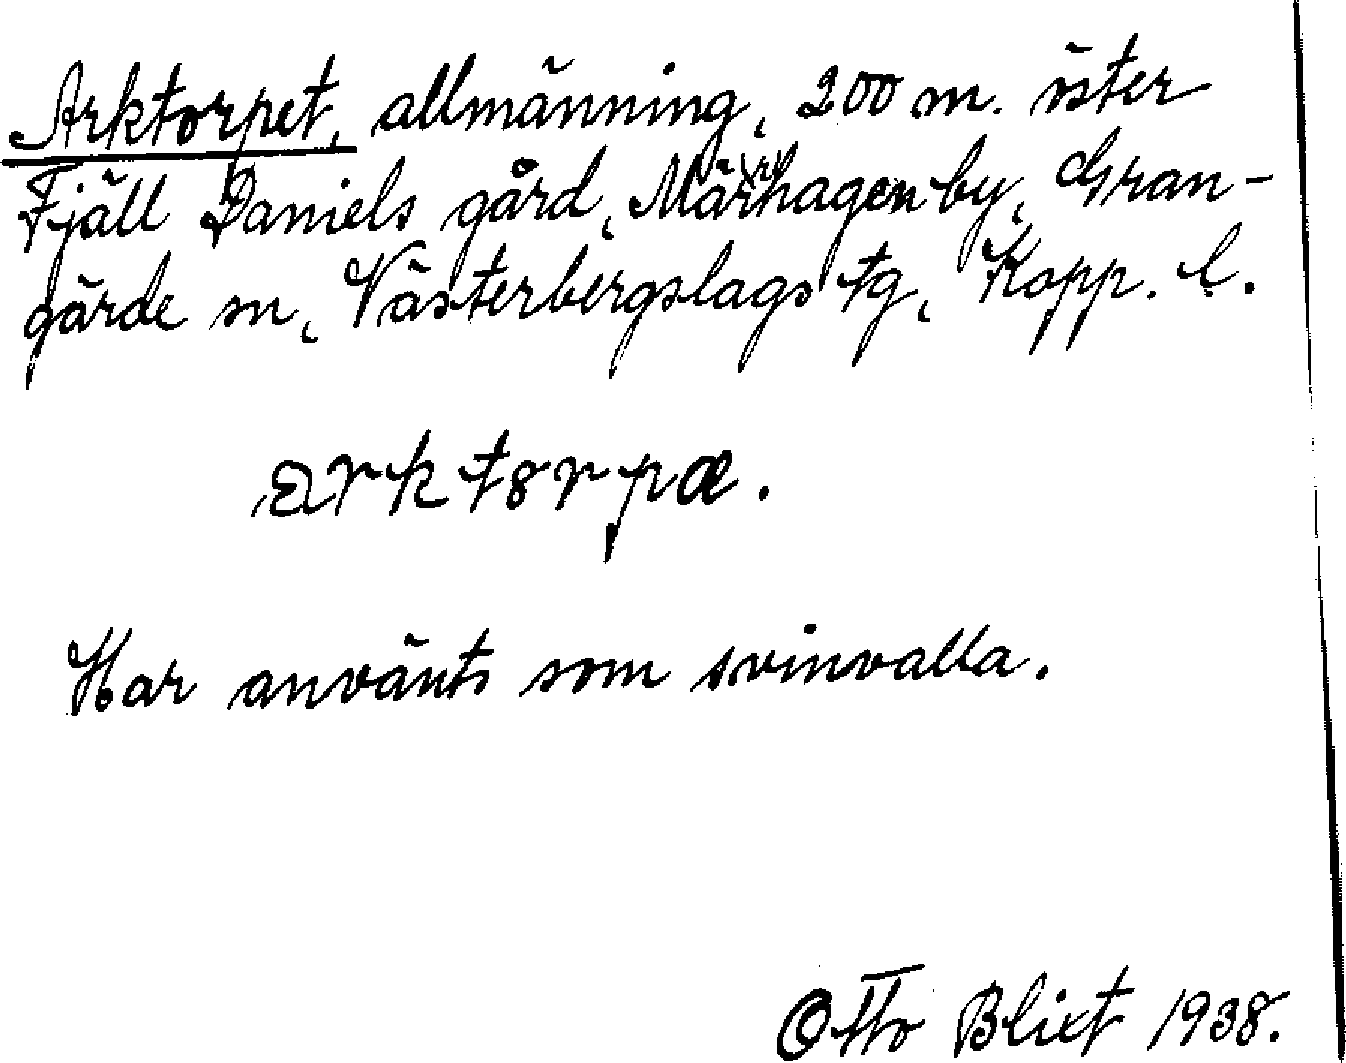 Arktorpet, allmänning, 200 m. öster
Fjäll Daniels gård, Märrhagen by, Gran-
gärde sn, Västerbergslags tg, Kopp. l.
arktɞrpæ.
Har använts som svinvalla.
Otto Blixt 1938.